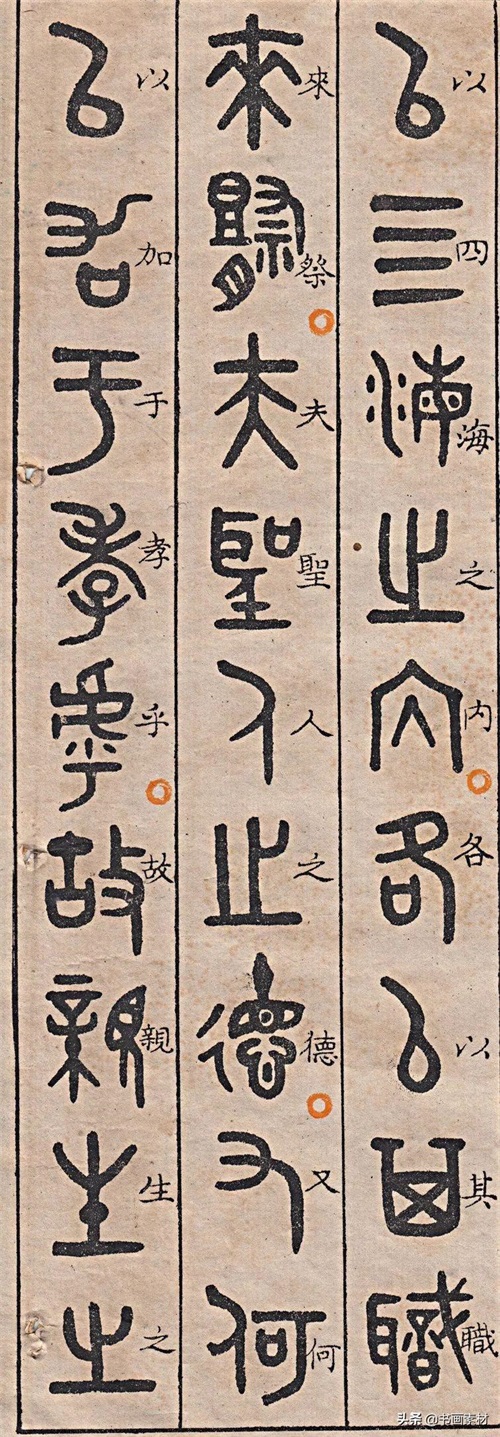 以四海之内各以其職
來祭夫聖人之德又何
以加于孝乎故親生之
头条@书画素材